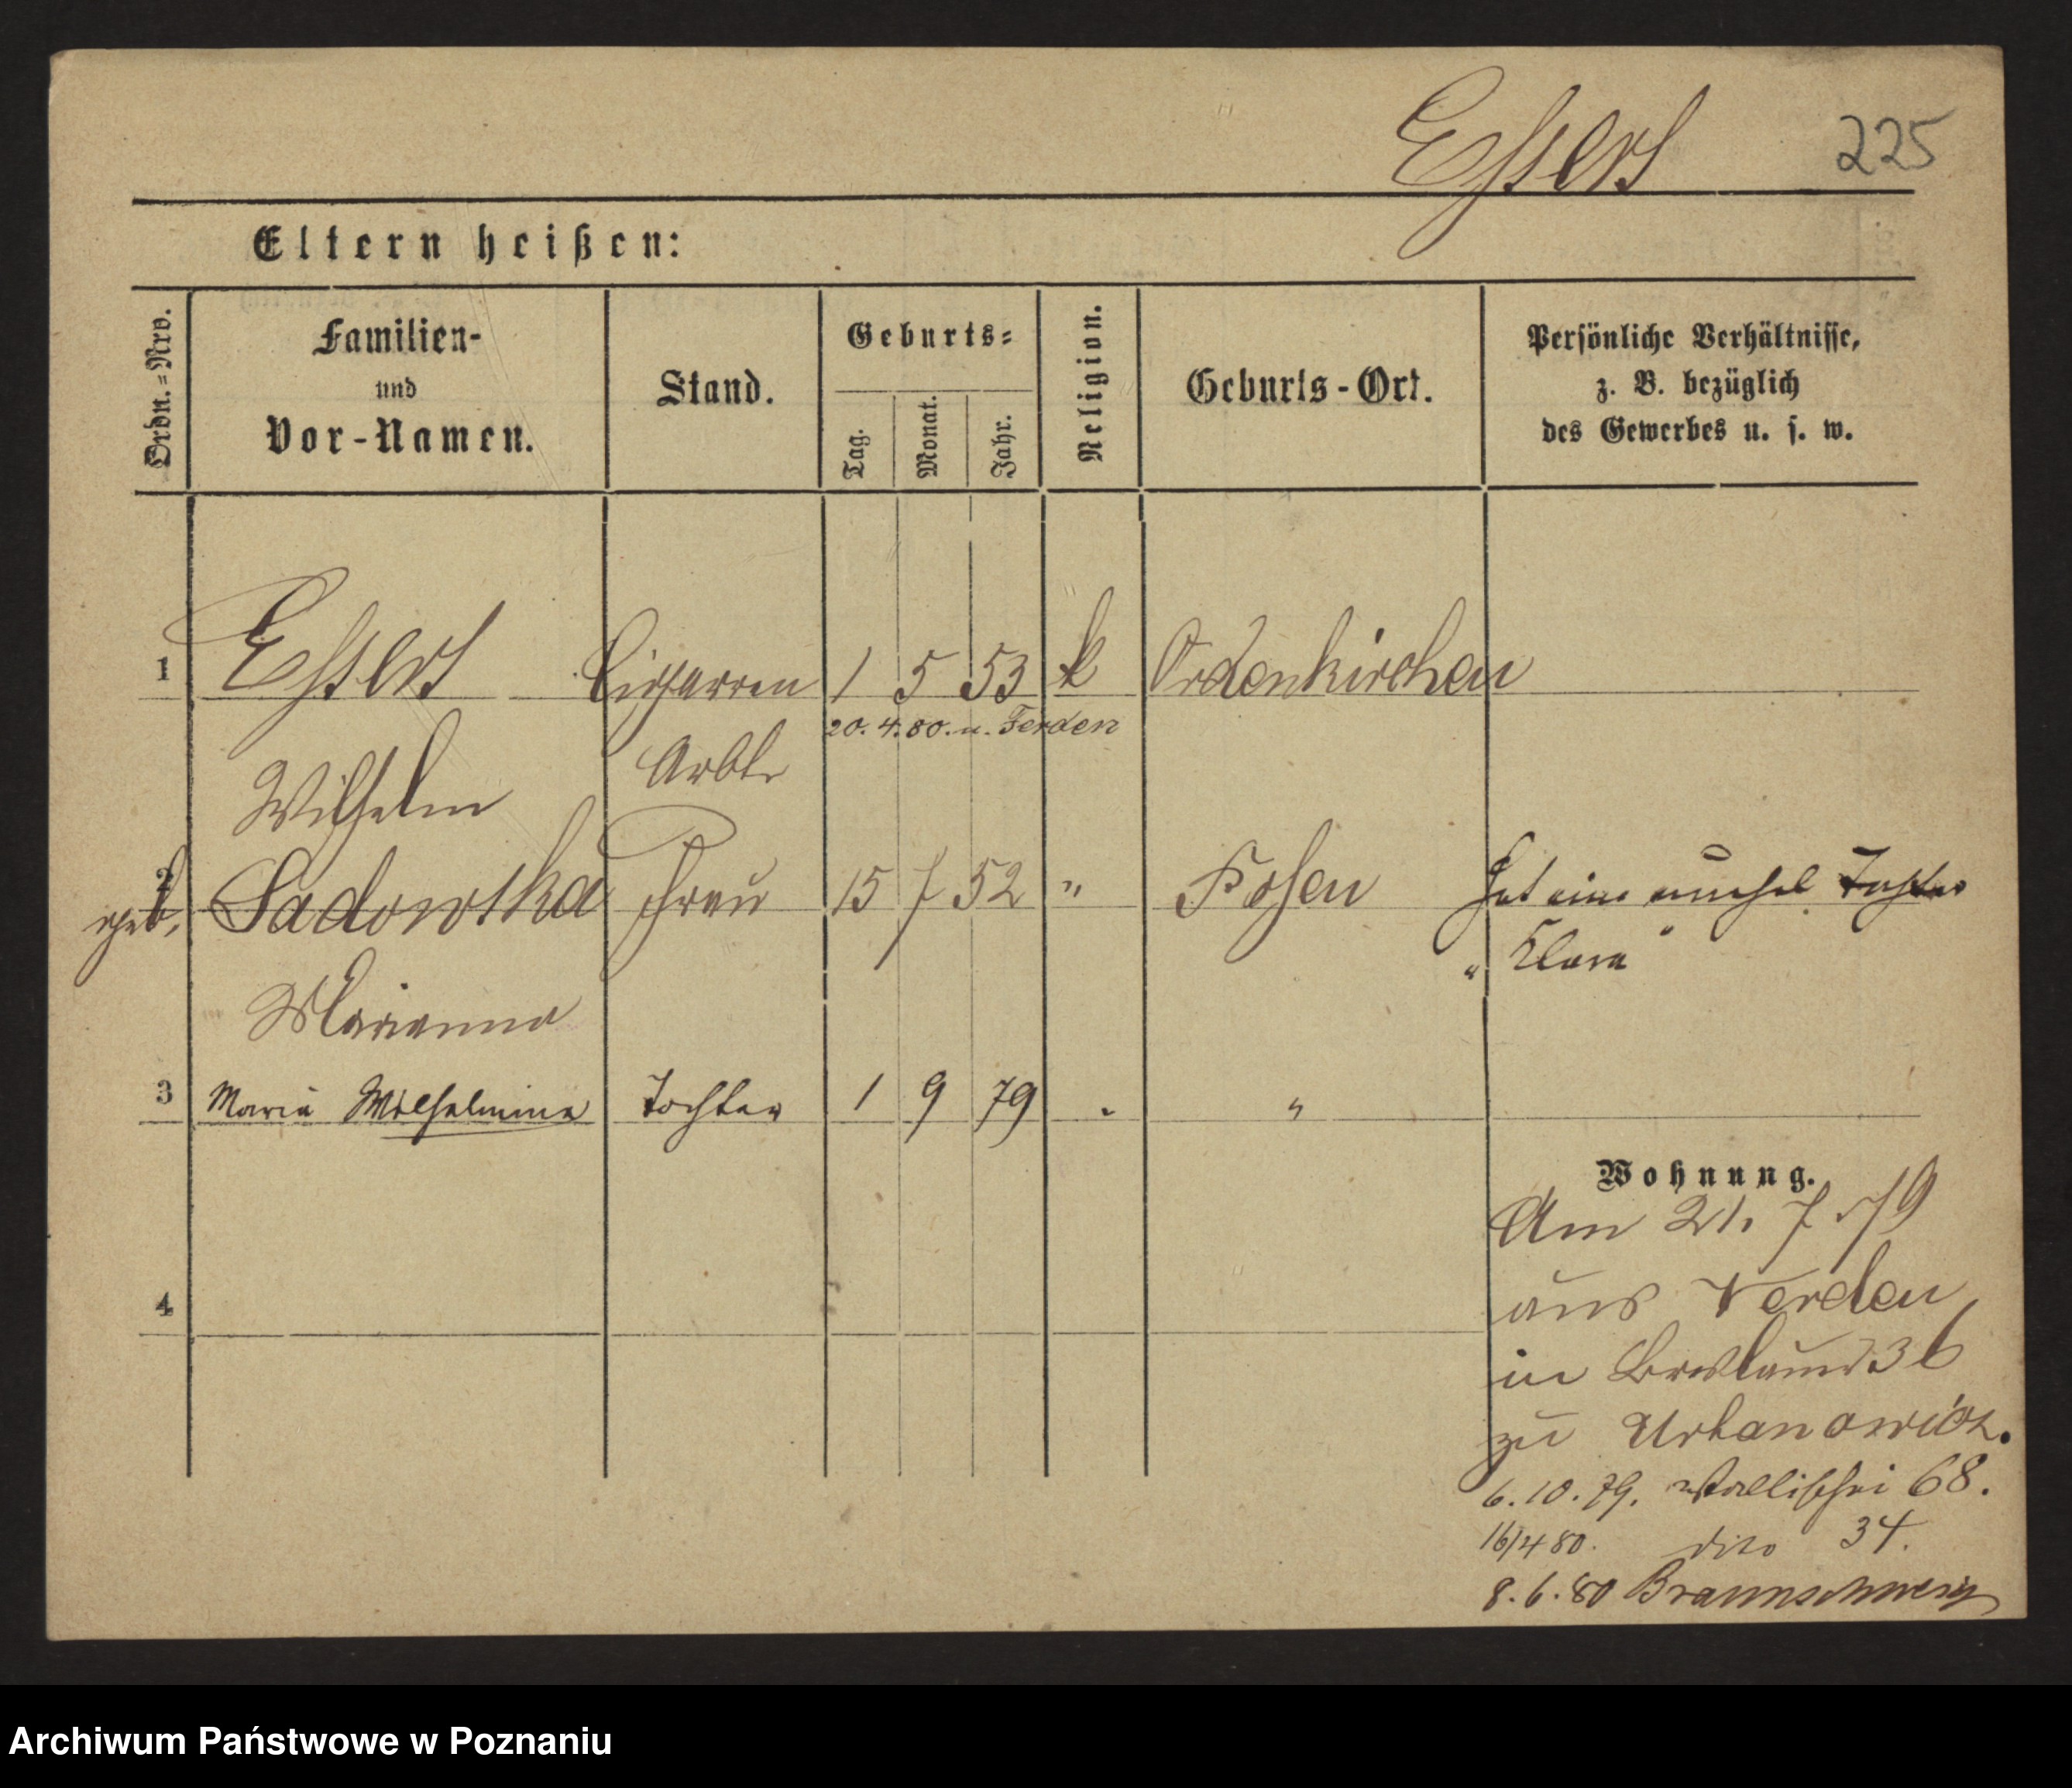 Essers 225
Eltern heißen:
Ordn.=Nro.
Familien-
und
Vor-Namen.
Stand.
Geburts=
Tag.
Monat.
Jahr.
Religion.
Geburts-Ort.
Persönliche Verhältnisse,
z. B. bezüglich
des Gewerbes u. s. w.
1 Essers Cigarren 1 5 53 k Odenkirchen
20. 4. 80. n. Ferden
Wilhelm Arbtr
2 geb. Sadowska Frau 15 7 52 " Posen Hat eine unehel Tochter
"Klara"
Marianna
3 Maria Wilhelmine Tochter 1 9 79 " "
Wohnung.
4
Am 21. 7. 79
aus Verden
in Breslauerst 36
zu Urbanowicz.
6. 10. 79. Wallischei 68.
16/4 80. dito 34.
8. 6. 80 Braunschweig
Archiwum Państwowe w Poznaniu